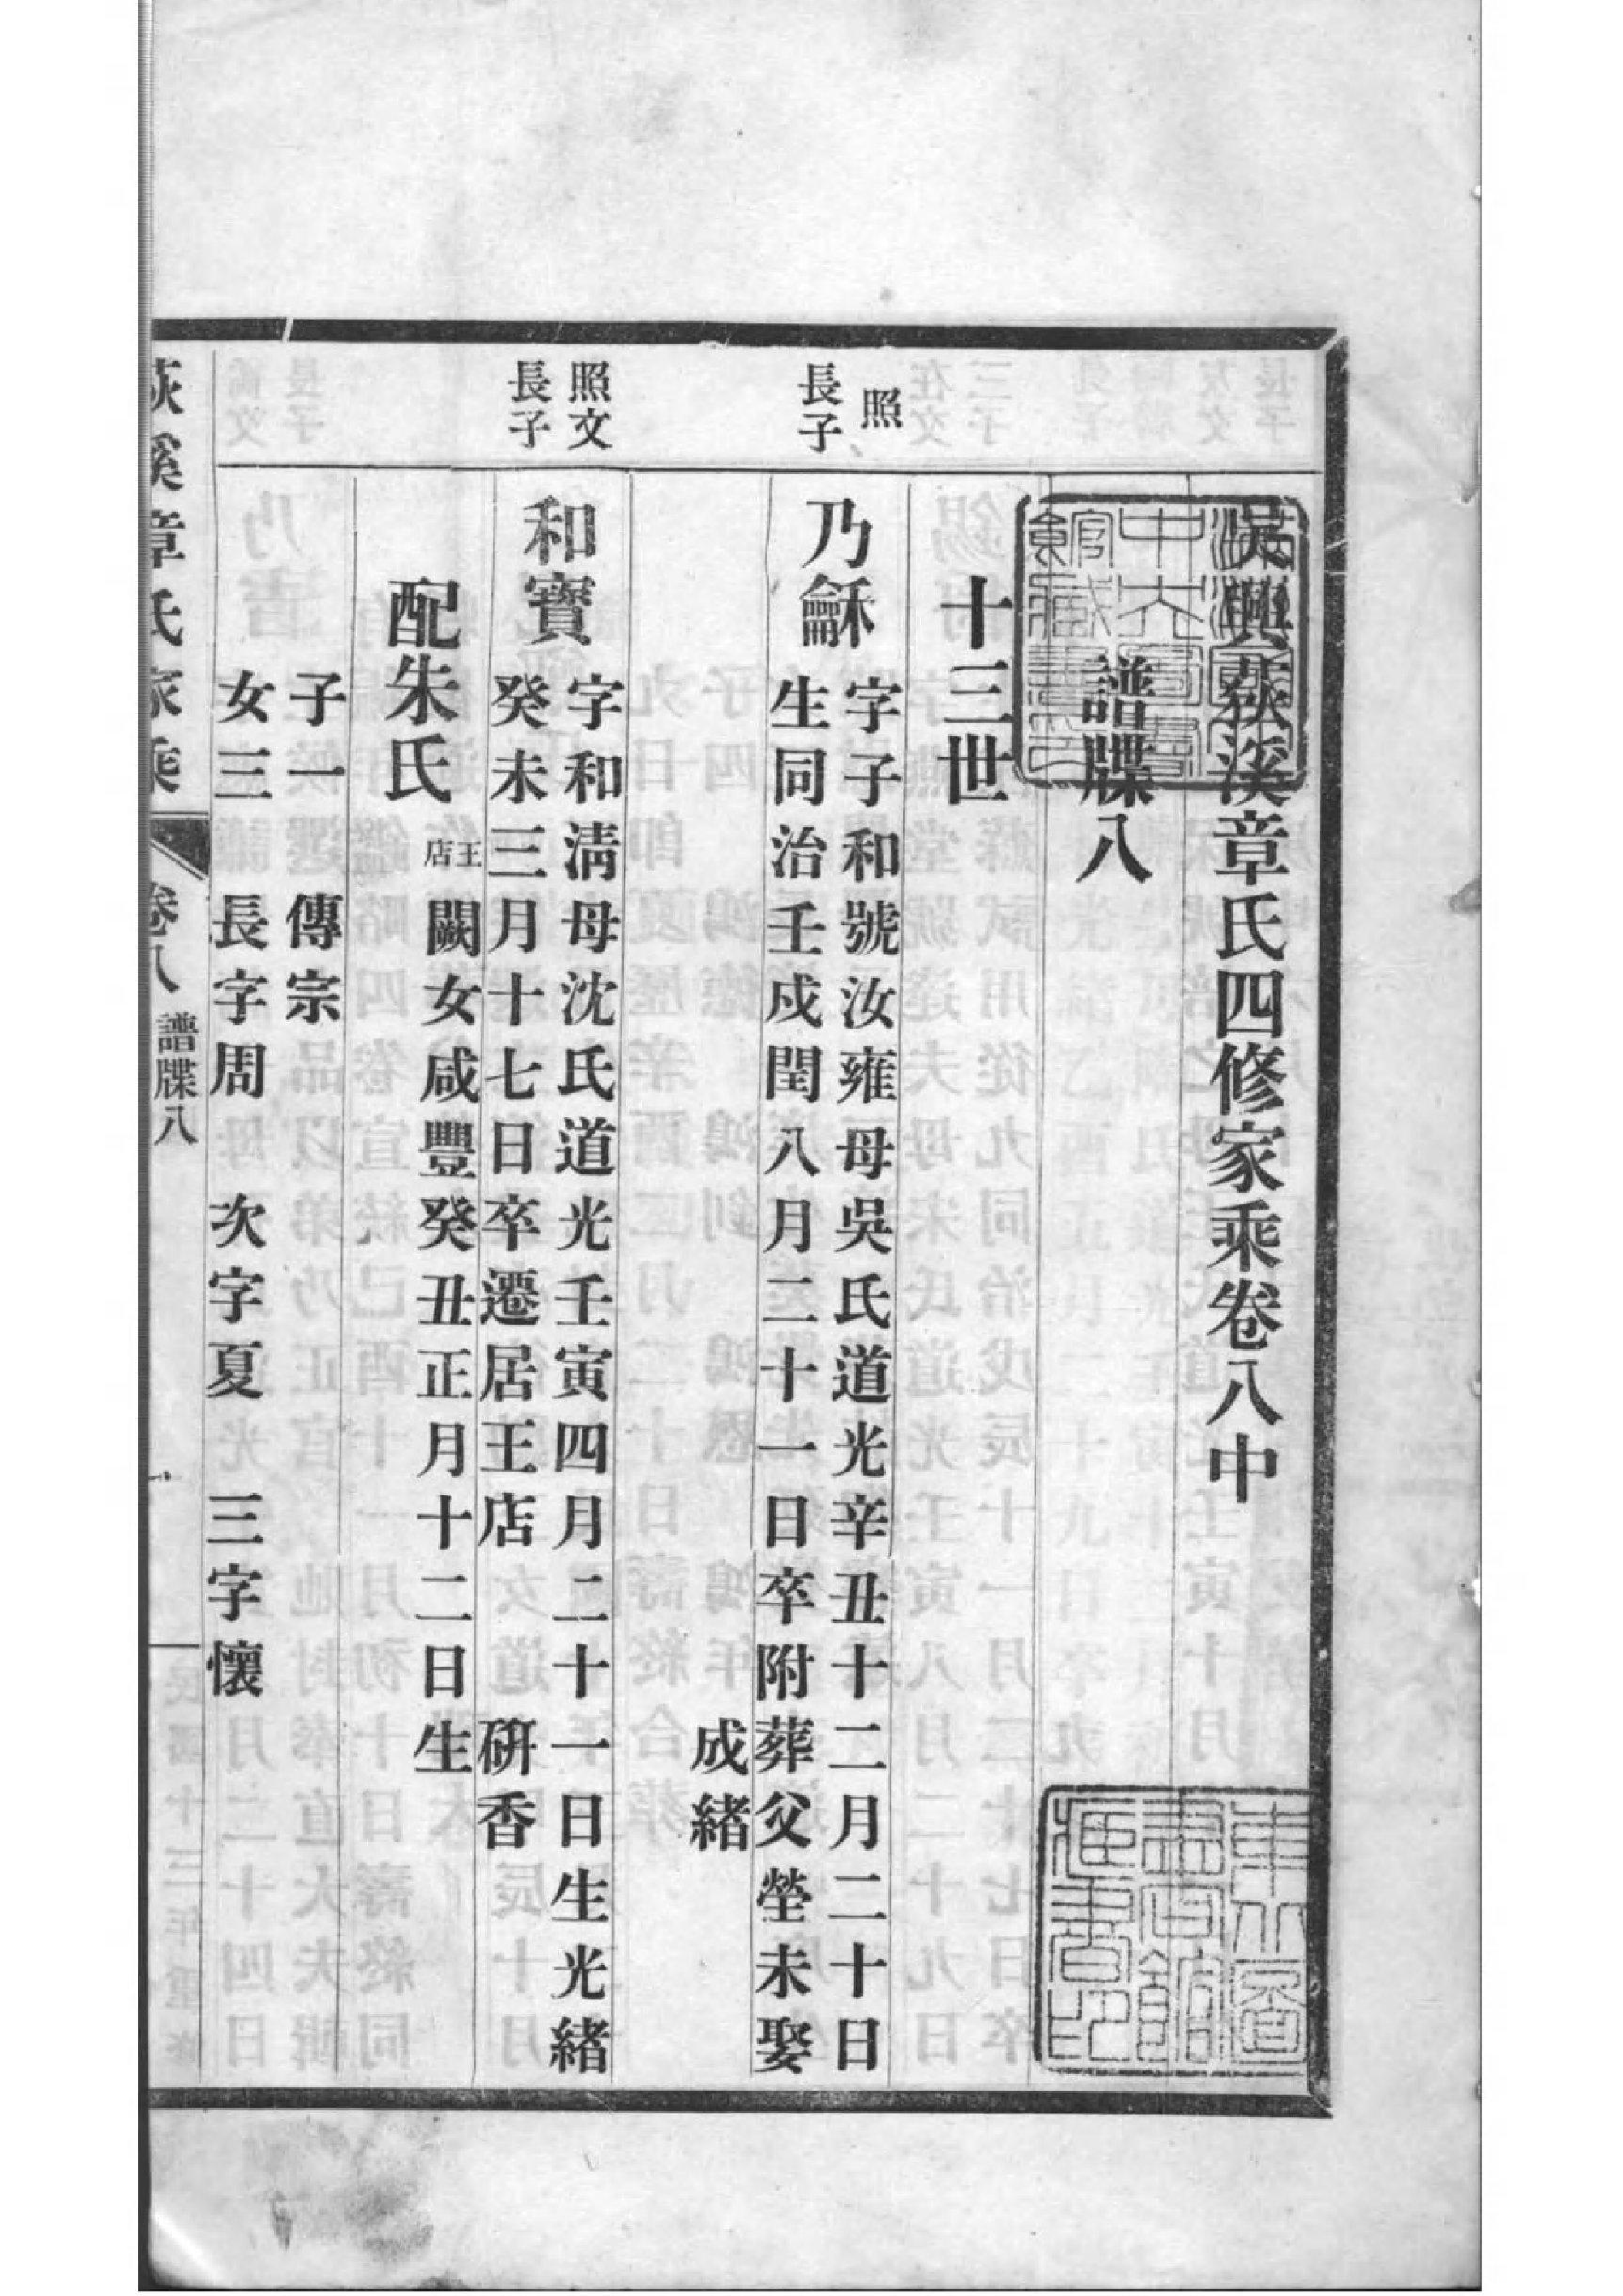 吳興荻溪章氏四修家乘卷八中
譜牒八
十三世
照
長子
乃龢
字子和號汝雍母吳氏道光辛丑十二月二十日
生同治壬戌閏八月二十一日卒附葬父塋未娶
成緒
照文
長子
和寶
字和淸母沈氏道光壬寅四月二十一日生光緒
癸未三月十七日卒遷居王店
研香
配朱氏
王店
闕女咸豐癸丑正月十二日生
子一
傳宗
女三
長字周
次字夏
三字懷
荻溪章氏家乘
卷八
譜牒八